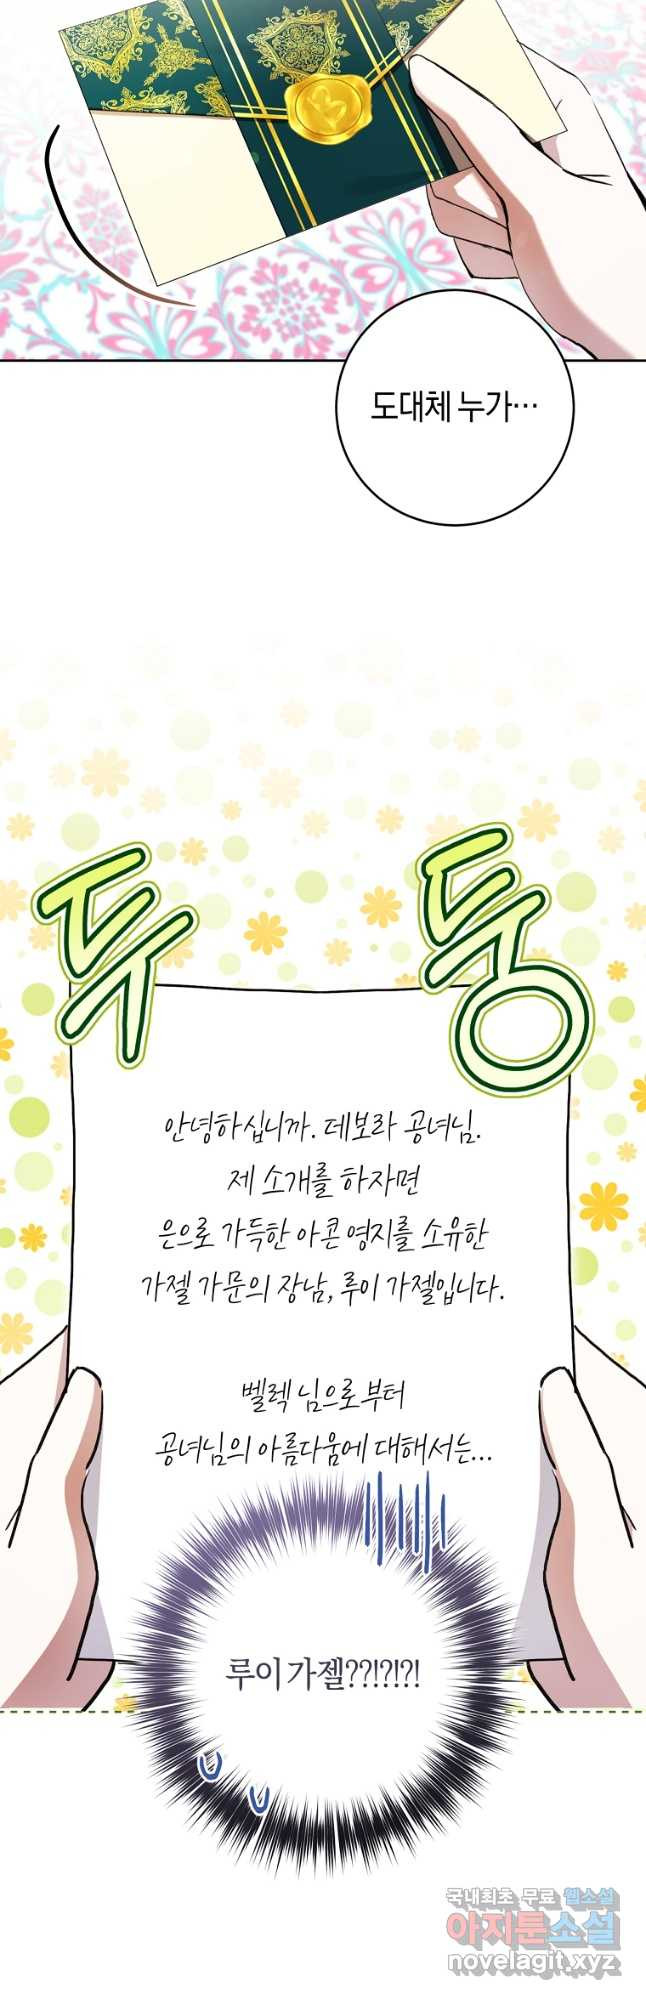 도대체 누가…
두둥
안녕하십니까. 데보라 공녀님.
제 소개를 하자면
은으로 가득한 아콘 영지를 소유한
가젤 가문의 장남, 루이 가젤입니다.
벨렉 님으로부터
공녀님의 아름다움에 대해서는...
루이 가젤??!?!?!
국내최초 무료 웹소설
아지툰소설
novelagit.xyz